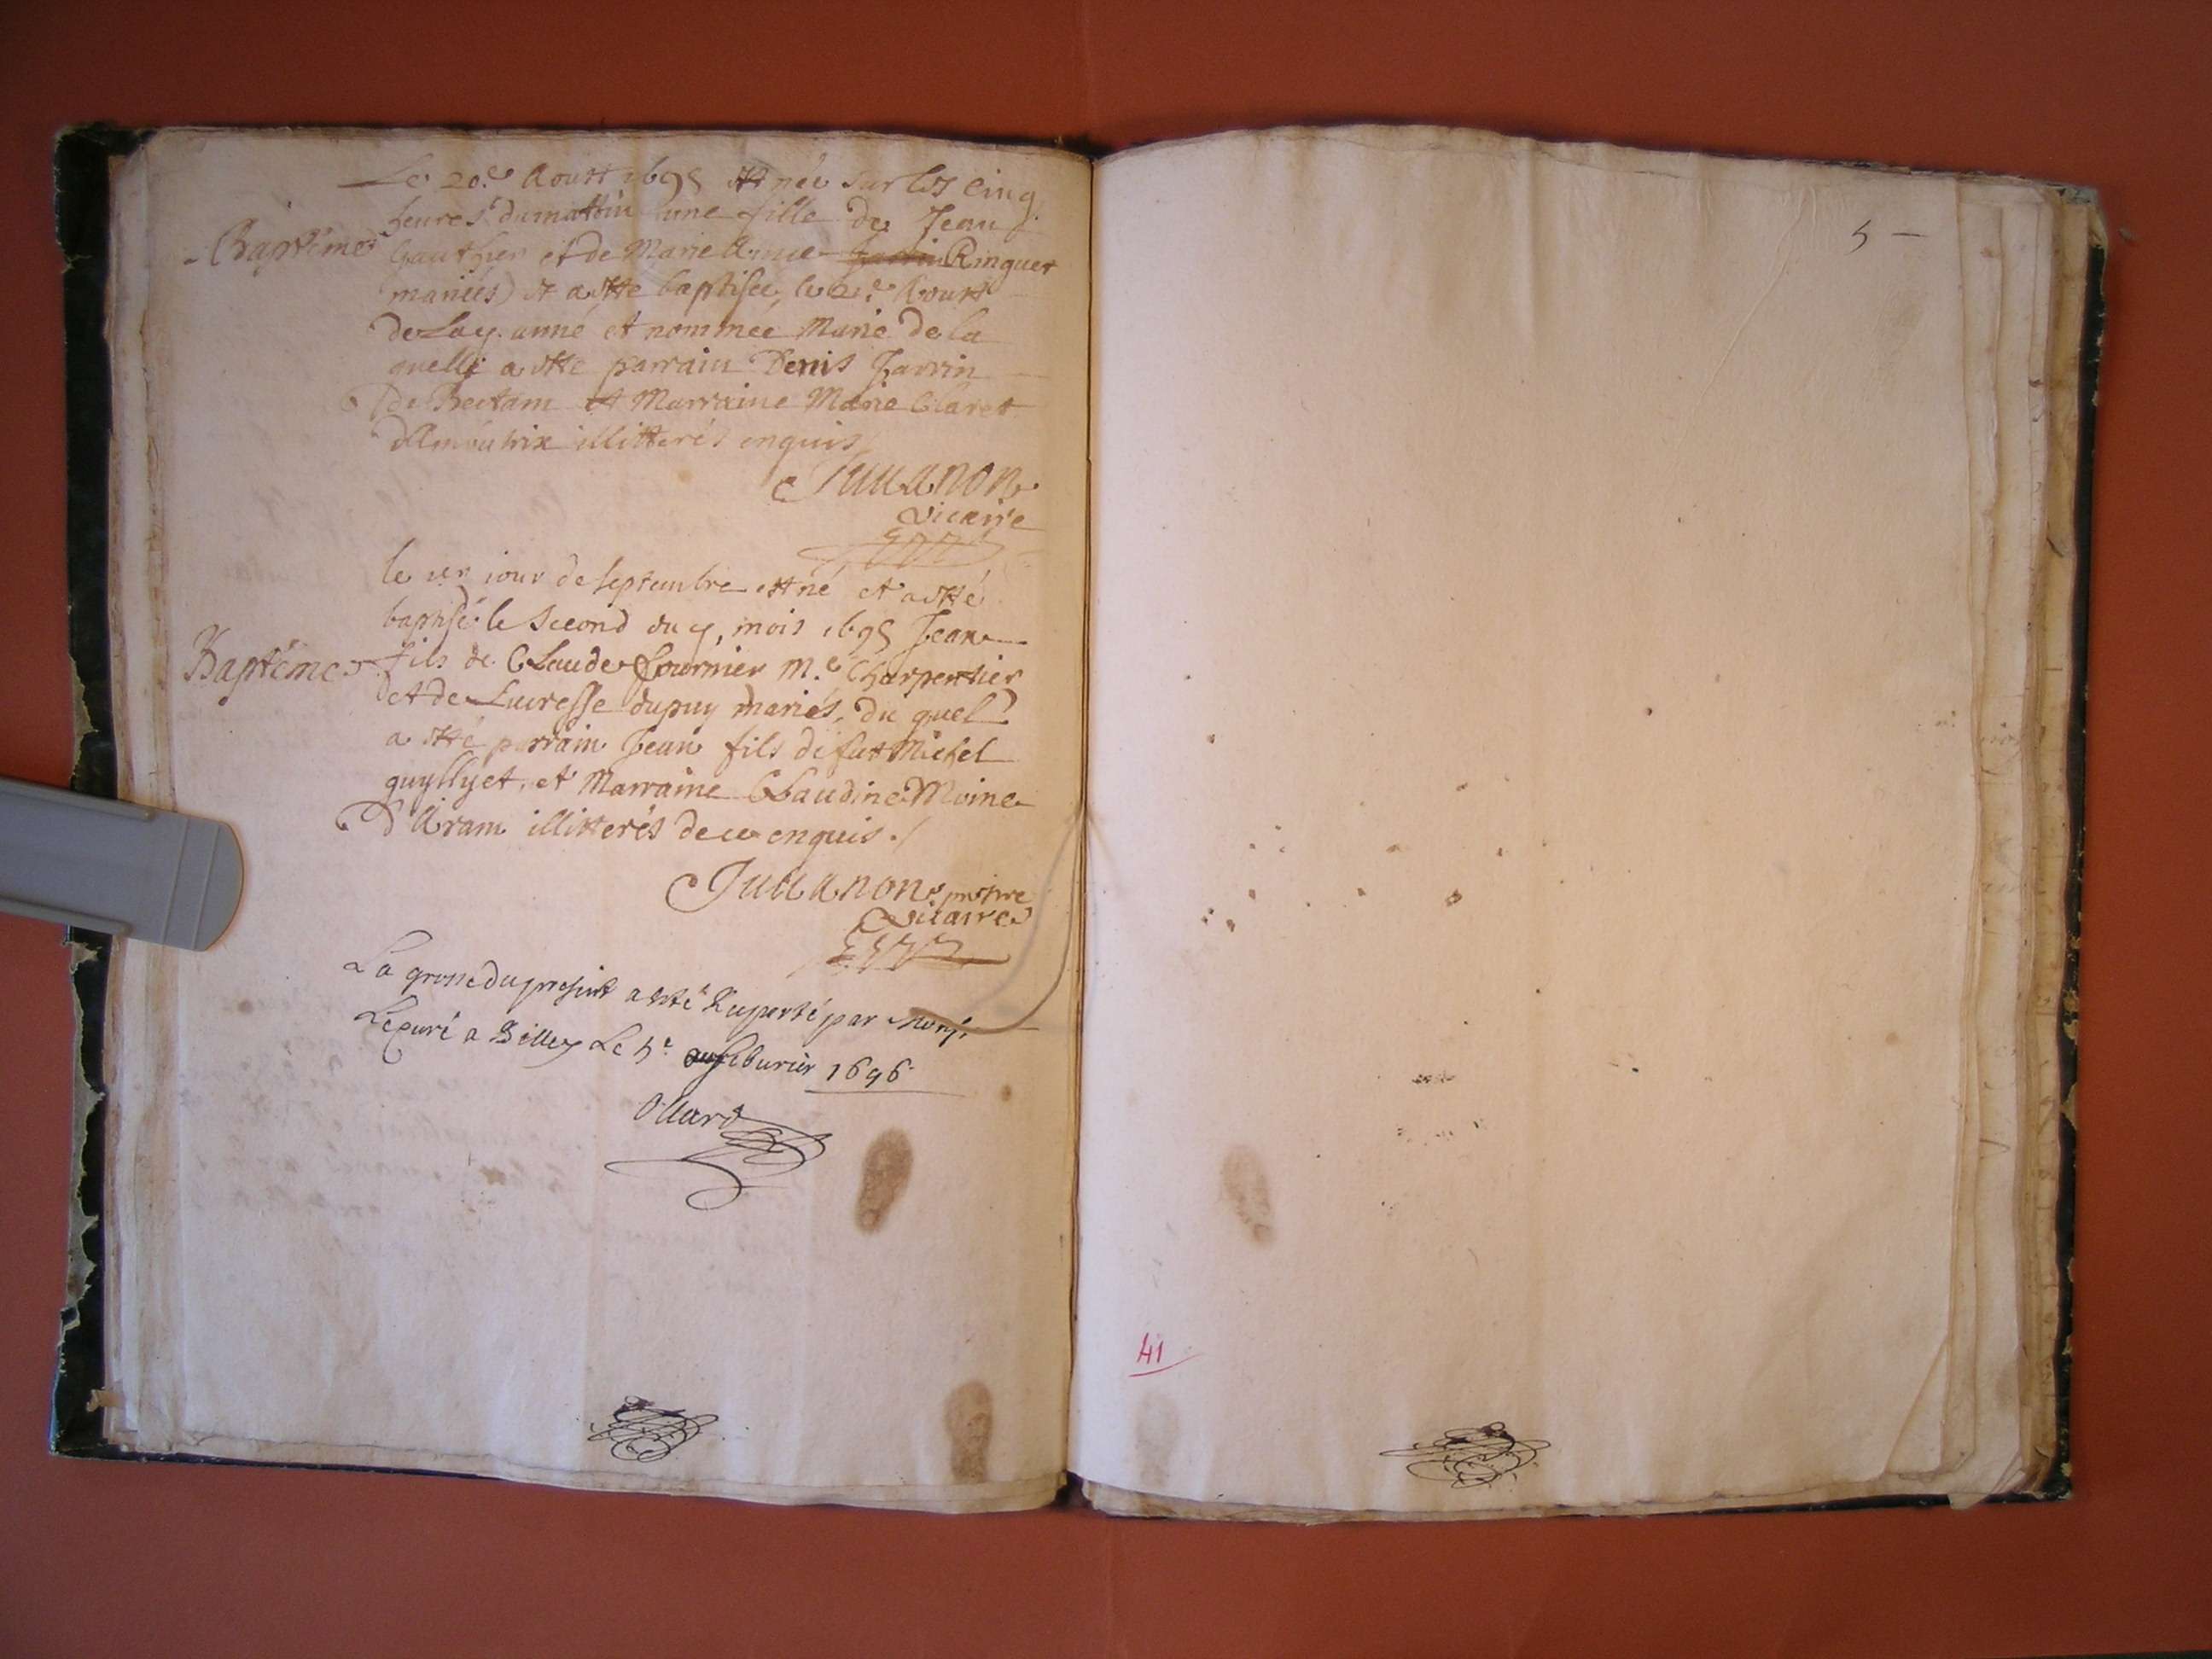 Le 20.e Aoust 1695 est née sur les Cinq
heures du mattin une fille de Jean
Baptême Gauthier et de Marie Anne Ringuet
mariés et a esté baptisée, le 21.e Aoust
de la p. anné et nommée Marie de la
quelle a esté parrain Denis Jarrin
de Bectam et Marraine Marie Claret
illitterés enquis
Juuanon
vicaire
le ier iour de septembre est né et a esté
baptisé le second du p. mois 1695 Jean
Baptême fils de Claude fournier M.e Charpentier
et de Lucresse dupuy mariés, du quel
a esté parrain Jean fils de fut Michel
guyllyet, et Marraine Claudine Moine
d'Aram illitterés de ce enquis ./
Juuanon prestre
vicaire
La grosse du present a esté raporté par Monsr
Le curé a Belley Le 5e feburier 1696
Ollard
5
41